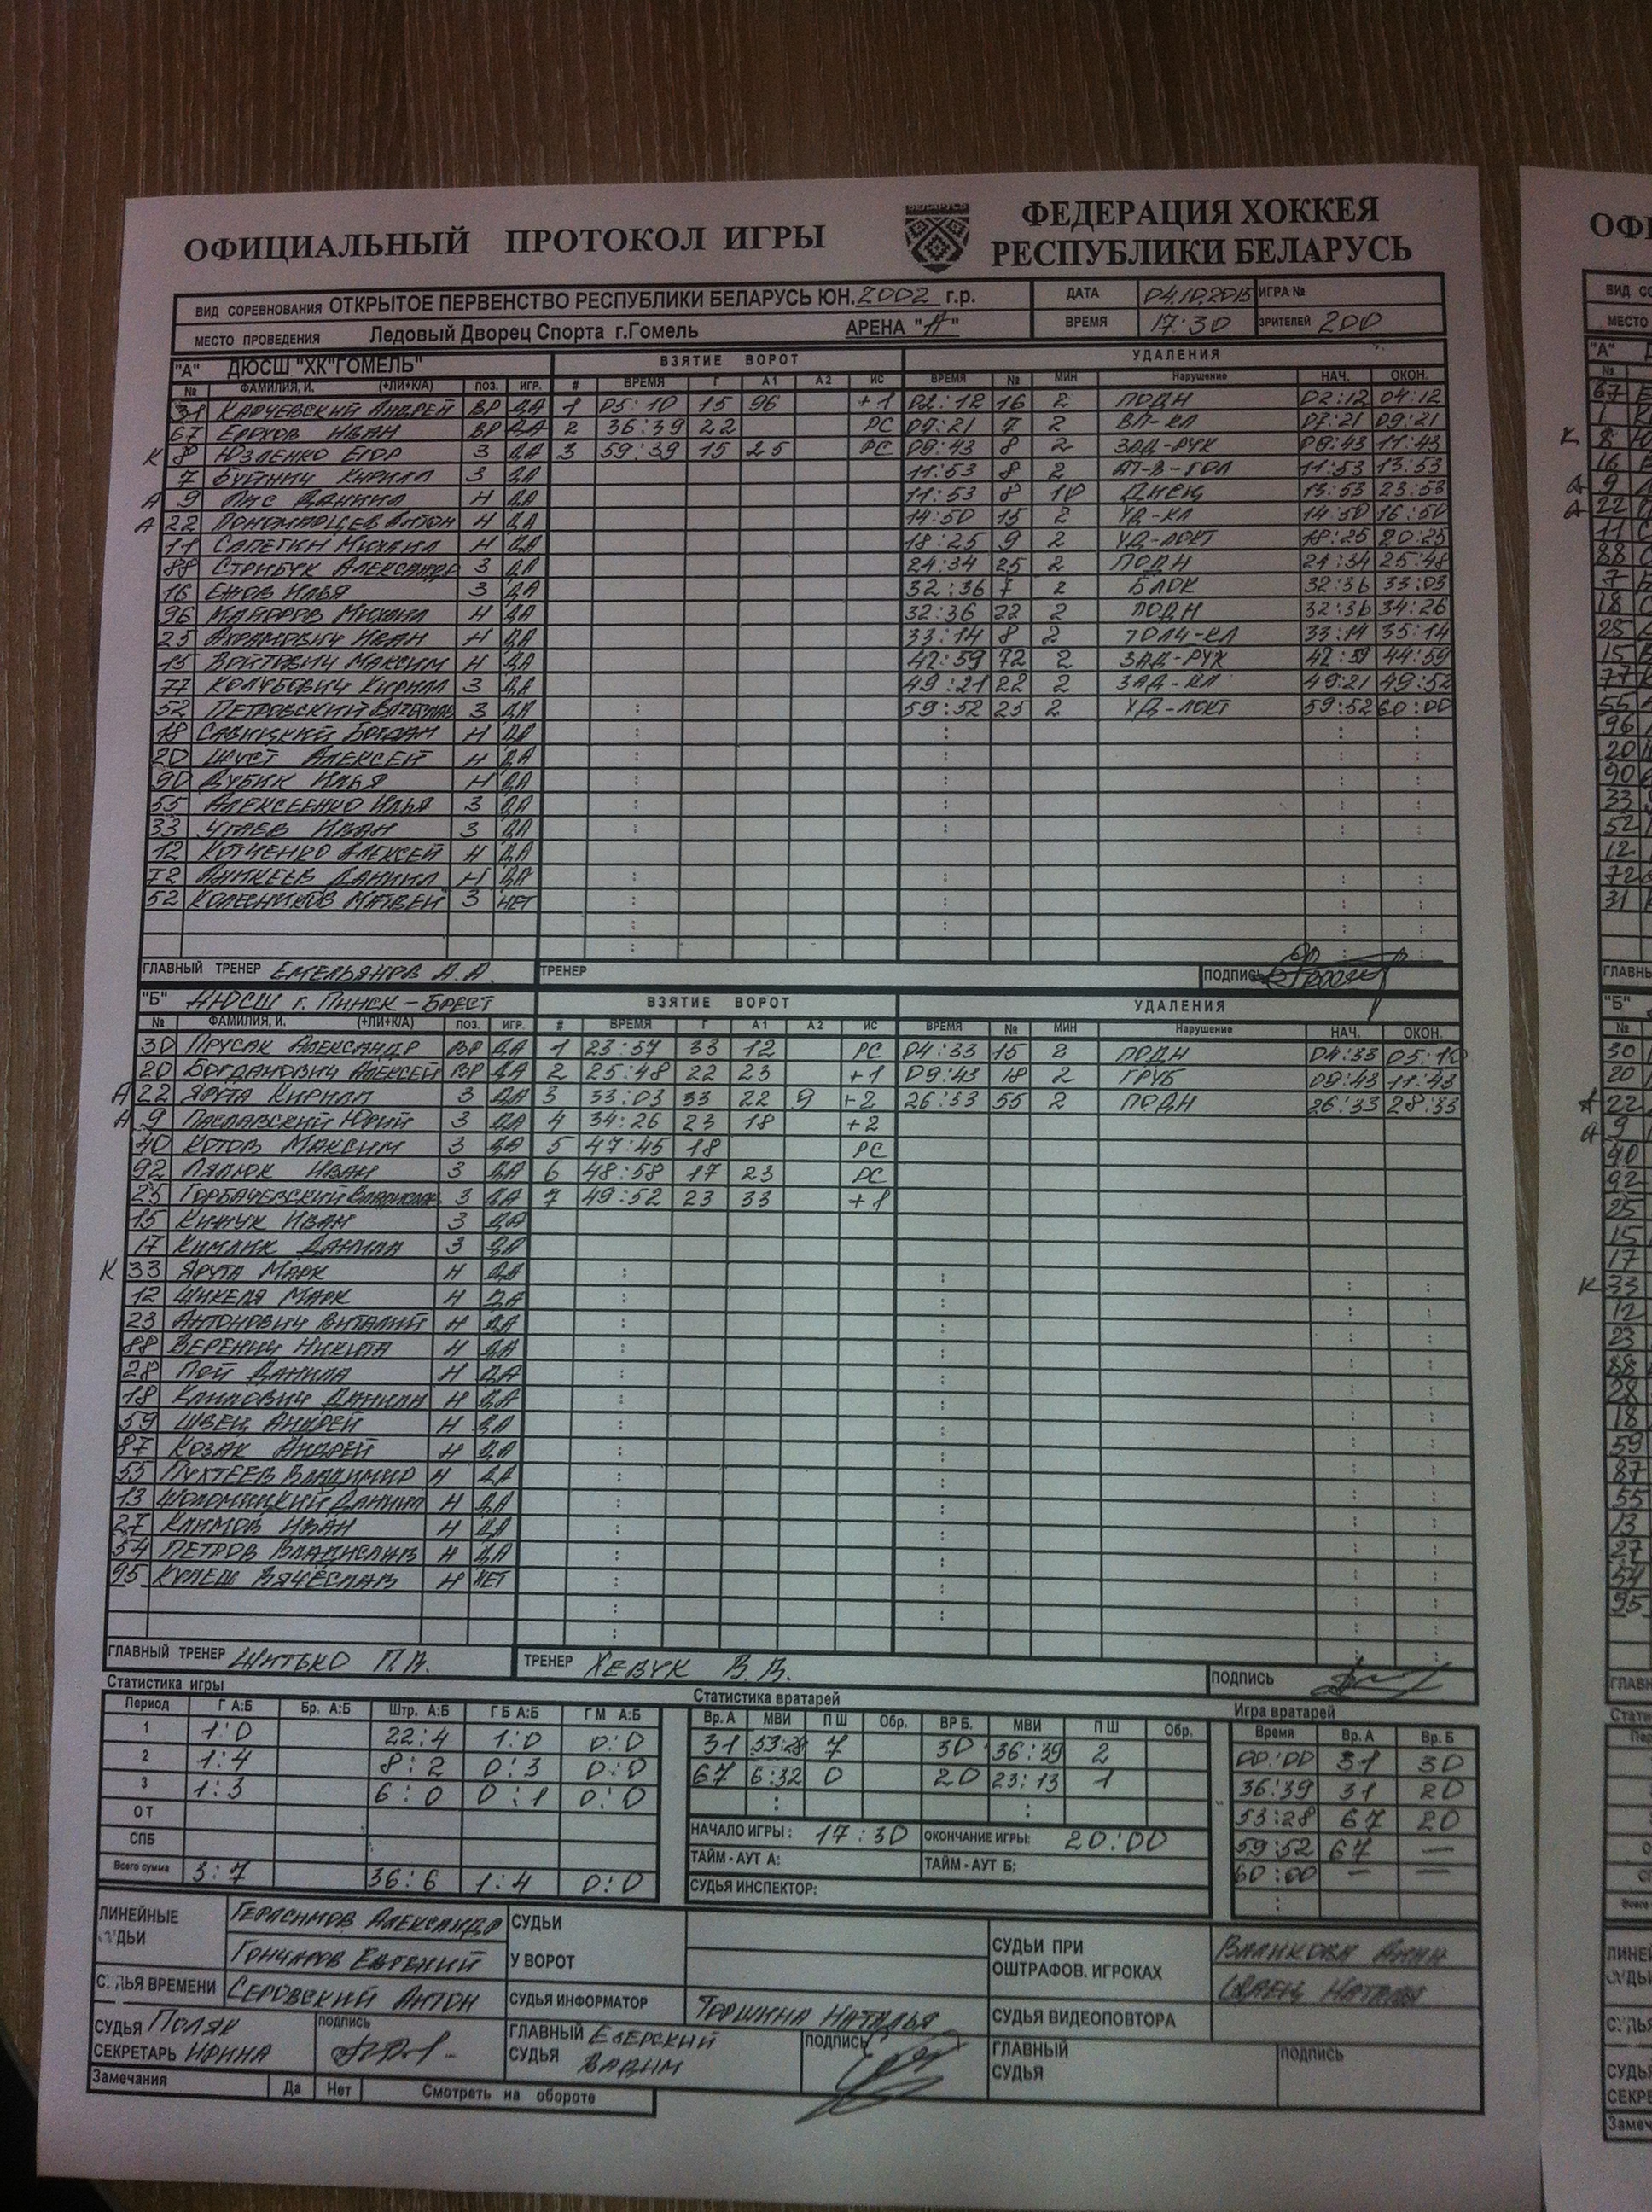 ОФИЦИАЛЬНЫЙ ПРОТОКОЛ ИГРЫ
ФЕДЕРАЦИЯ ХОККЕЯ
РЕСПУБЛИКИ БЕЛАРУСЬ
ВИД СОРЕВНОВАНИЯ ОТКРЫТОЕ ПЕРВЕНСТВО РЕСПУБЛИКИ БЕЛАРУСЬ ЮН. 2002 г.р. ДАТА 04.10.2015 ИГРА №
МЕСТО ПРОВЕДЕНИЯ Ледовый Дворец Спорта г.Гомель АРЕНА "А" ВРЕМЯ 17:30 ЗРИТЕЛЕЙ 200
"А" ДЮСШ "ХК"ГОМЕЛЬ" ВЗЯТИЕ ВОРОТ УДАЛЕНИЯ
№ ФАМИЛИЯ, И. (+ЛИ+К/А) ПОЗ. ИГР. # ВРЕМЯ Г А1 А2 ИС ВРЕМЯ № МИН Нарушение НАЧ. ОКОН.
31 КАРЧЕВСКИЙ АНДРЕЙ ВР ДА 1 05:10 15 96 +1 02:12 16 2 ПОДН 02:12 04:12
67 ЕРОХОВ ИВАН ВР ДА 2 36:39 22 РС 07:21 7 2 ВП-КЛ 07:21 09:21
К 8 ЮЗЛЕНКО ЕГОР З ДА 3 59:39 15 25 РС 09:43 8 2 ЗАД-РУК 09:43 11:43
7 БУЙНИЧ КИРИЛЛ З ДА 11:53 8 2 АТ-В-ГОЛ 11:53 13:53
А 9 ЛИС ДАНИИЛ Н ДА 11:53 8 10 ДИСЦ 13:53 23:53
А 22 ПОНОМАРЦЕВ АНТОН Н ДА 14:50 15 2 УД-КЛ 14:50 16:50
11 САПЕГИН МИХАИЛ Н ДА 18:25 9 2 УД-ЛОКТ 18:25 20:25
88 СТРИБУК АЛЕКСАНДР З ДА 24:34 25 2 ПОДН 24:34 25:48
16 ЕЖОВ ИЛЬЯ З ДА 32:36 7 2 БЛОК 32:36 33:03
96 МАЙОРОВ МИХАИЛ Н ДА 32:36 22 2 ПОДН 32:36 34:26
25 АХРАМОВИЧ ИВАН Н ДА 33:14 8 2 ТОЛЧ-КЛ 33:14 35:14
15 ВОЙТОВИЧ МАКСИМ Н ДА 42:59 72 2 ЗАД-РУК 42:59 44:59
77 КОЛУБОВИЧ КИРИЛЛ З ДА 49:21 22 2 ЗАД-КЛ 49:21 49:52
52 ПЕТРОВСКИЙ ВЯЧЕСЛАВ З ДА 59:52 25 2 УД-ЛОКТ 59:52 60:00
18 САВИЦКИЙ БОГДАН Н ДА
20 ШУСТ АЛЕКСЕЙ Н ДА
90 ДУБИК ИЛЬЯ Н ДА
55 АЛЕКСЕЕНКО ИЛЬЯ З ДА
33 ЧТАЕВ ИВАН З ДА
12 КОТЧЕНКО АЛЕКСЕЙ Н ДА
72 АНИКЕЕВ ДАНИИЛ Н ДА
52 КОЛЕСНИКОВ МАТВЕЙ З НЕТ
ГЛАВНЫЙ ТРЕНЕР ЕМЕЛЬЯНОВ А.А. ТРЕНЕР ПОДПИСЬ
"Б" ДЮСШ г. ПИНСК-БРЕСТ ВЗЯТИЕ ВОРОТ УДАЛЕНИЯ
№ ФАМИЛИЯ, И. (+ЛИ+К/А) ПОЗ. ИГР. # ВРЕМЯ Г А1 А2 ИС ВРЕМЯ № МИН Нарушение НАЧ. ОКОН.
30 ПРУСАК АЛЕКСАНДР ВР ДА 1 23:57 33 12 РС 04:33 15 2 ПОДН 04:33 05:10
20 БОГДАНОВИЧ АЛЕКСЕЙ ВР ДА 2 25:48 22 23 +1 09:43 18 2 ГРУБ 09:43 11:43
А 22 ЯРУТА КИРИЛЛ З ДА 3 33:03 33 22 9 +2 26:33 55 2 ПОДН 26:33 28:33
А 9 ПАСЛАВСКИЙ ЮРИЙ З ДА 4 34:26 23 18 +2
40 КОТОВ МАКСИМ З ДА 5 47:45 18 РС
92 ПЯЛЮК ИВАН З ДА 6 48:58 17 23 РС
25 ГОРБАЧЕВСКИЙ ВЛАДИСЛАВ З ДА 7 49:52 23 33 +1
15 КИШУК ИВАН З ДА
17 КИМЛИК ДАНИЛА З ДА
К 33 ЯРУТА МАРК Н ДА
12 ШИКЕЛЯ МАРК Н ДА
23 АНТОНОВИЧ ВИТАЛИЙ Н ДА
88 ВЕРЕНИЧ НИКИТА Н ДА
28 ПОЙ ДАНИЛА Н ДА
18 КЛИМОВИЧ ДАНИЛА Н ДА
59 ШВЕЦ АНДРЕЙ Н ДА
87 КОЗАК АНДРЕЙ Н ДА
55 ПУХТЕЕВ ВЛАДИМИР Н ДА
13 ШОЛОМИЦКИЙ ДАНИИЛ Н ДА
27 КЛИМОВ ИВАН Н ДА
54 ПЕТРОВ ВЛАДИСЛАВ Н ДА
95 КУЛЕШ ВЯЧЕСЛАВ Н НЕТ
ГЛАВНЫЙ ТРЕНЕР ШИТЬКО П.В. ТРЕНЕР ХЕВУК В.В. ПОДПИСЬ
Статистика игры Статистика вратарей Игра вратарей
Период Г А:Б Бр. А:Б Штр. А:Б Г Б А:Б Г М А:Б Вр. А МВИ П Ш Обр. ВР Б. МВИ П Ш Обр. Время Вр. А Вр. Б
1 1:0 22:4 1:0 0:0 31 53:28 7 30 36:39 2 00:00 31 30
2 1:4 8:2 0:3 0:0 67 6:32 0 20 23:13 1 36:39 31 20
3 1:3 6:0 0:1 0:0 53:28 67 20
ОТ НАЧАЛО ИГРЫ: 17:30 ОКОНЧАНИЕ ИГРЫ: 20:00 59:52 67 —
СПБ ТАЙМ-АУТ А: ТАЙМ-АУТ Б: 60:00 — —
Всего сумма 3:7 36:6 1:4 0:0 СУДЬЯ ИНСПЕКТОР:
ЛИНЕЙНЫЕ СУДЬИ ГЕРАСИМОВ АЛЕКСАНДР СУДЬИ У ВОРОТ СУДЬИ ПРИ ОШТРАФОВ. ИГРОКАХ ВАЛИКОВА АННА
ГОНЧАРОВ ЕВГЕНИЙ НАТАЛЬЯ
СУДЬЯ ВРЕМЕНИ СЕРОВСКИЙ АНТОН СУДЬЯ ИНФОРМАТОР ТОРШИНА НАТАЛЬЯ СУДЬЯ ВИДЕОПОВТОРА
СУДЬЯ СЕКРЕТАРЬ ПОЛЯК ИРИНА ПОДПИСЬ ГЛАВНЫЙ СУДЬЯ ЕЗЕРСКИЙ ВАДИМ ПОДПИСЬ ГЛАВНЫЙ СУДЬЯ ПОДПИСЬ
Замечания Да Нет Смотреть на обороте